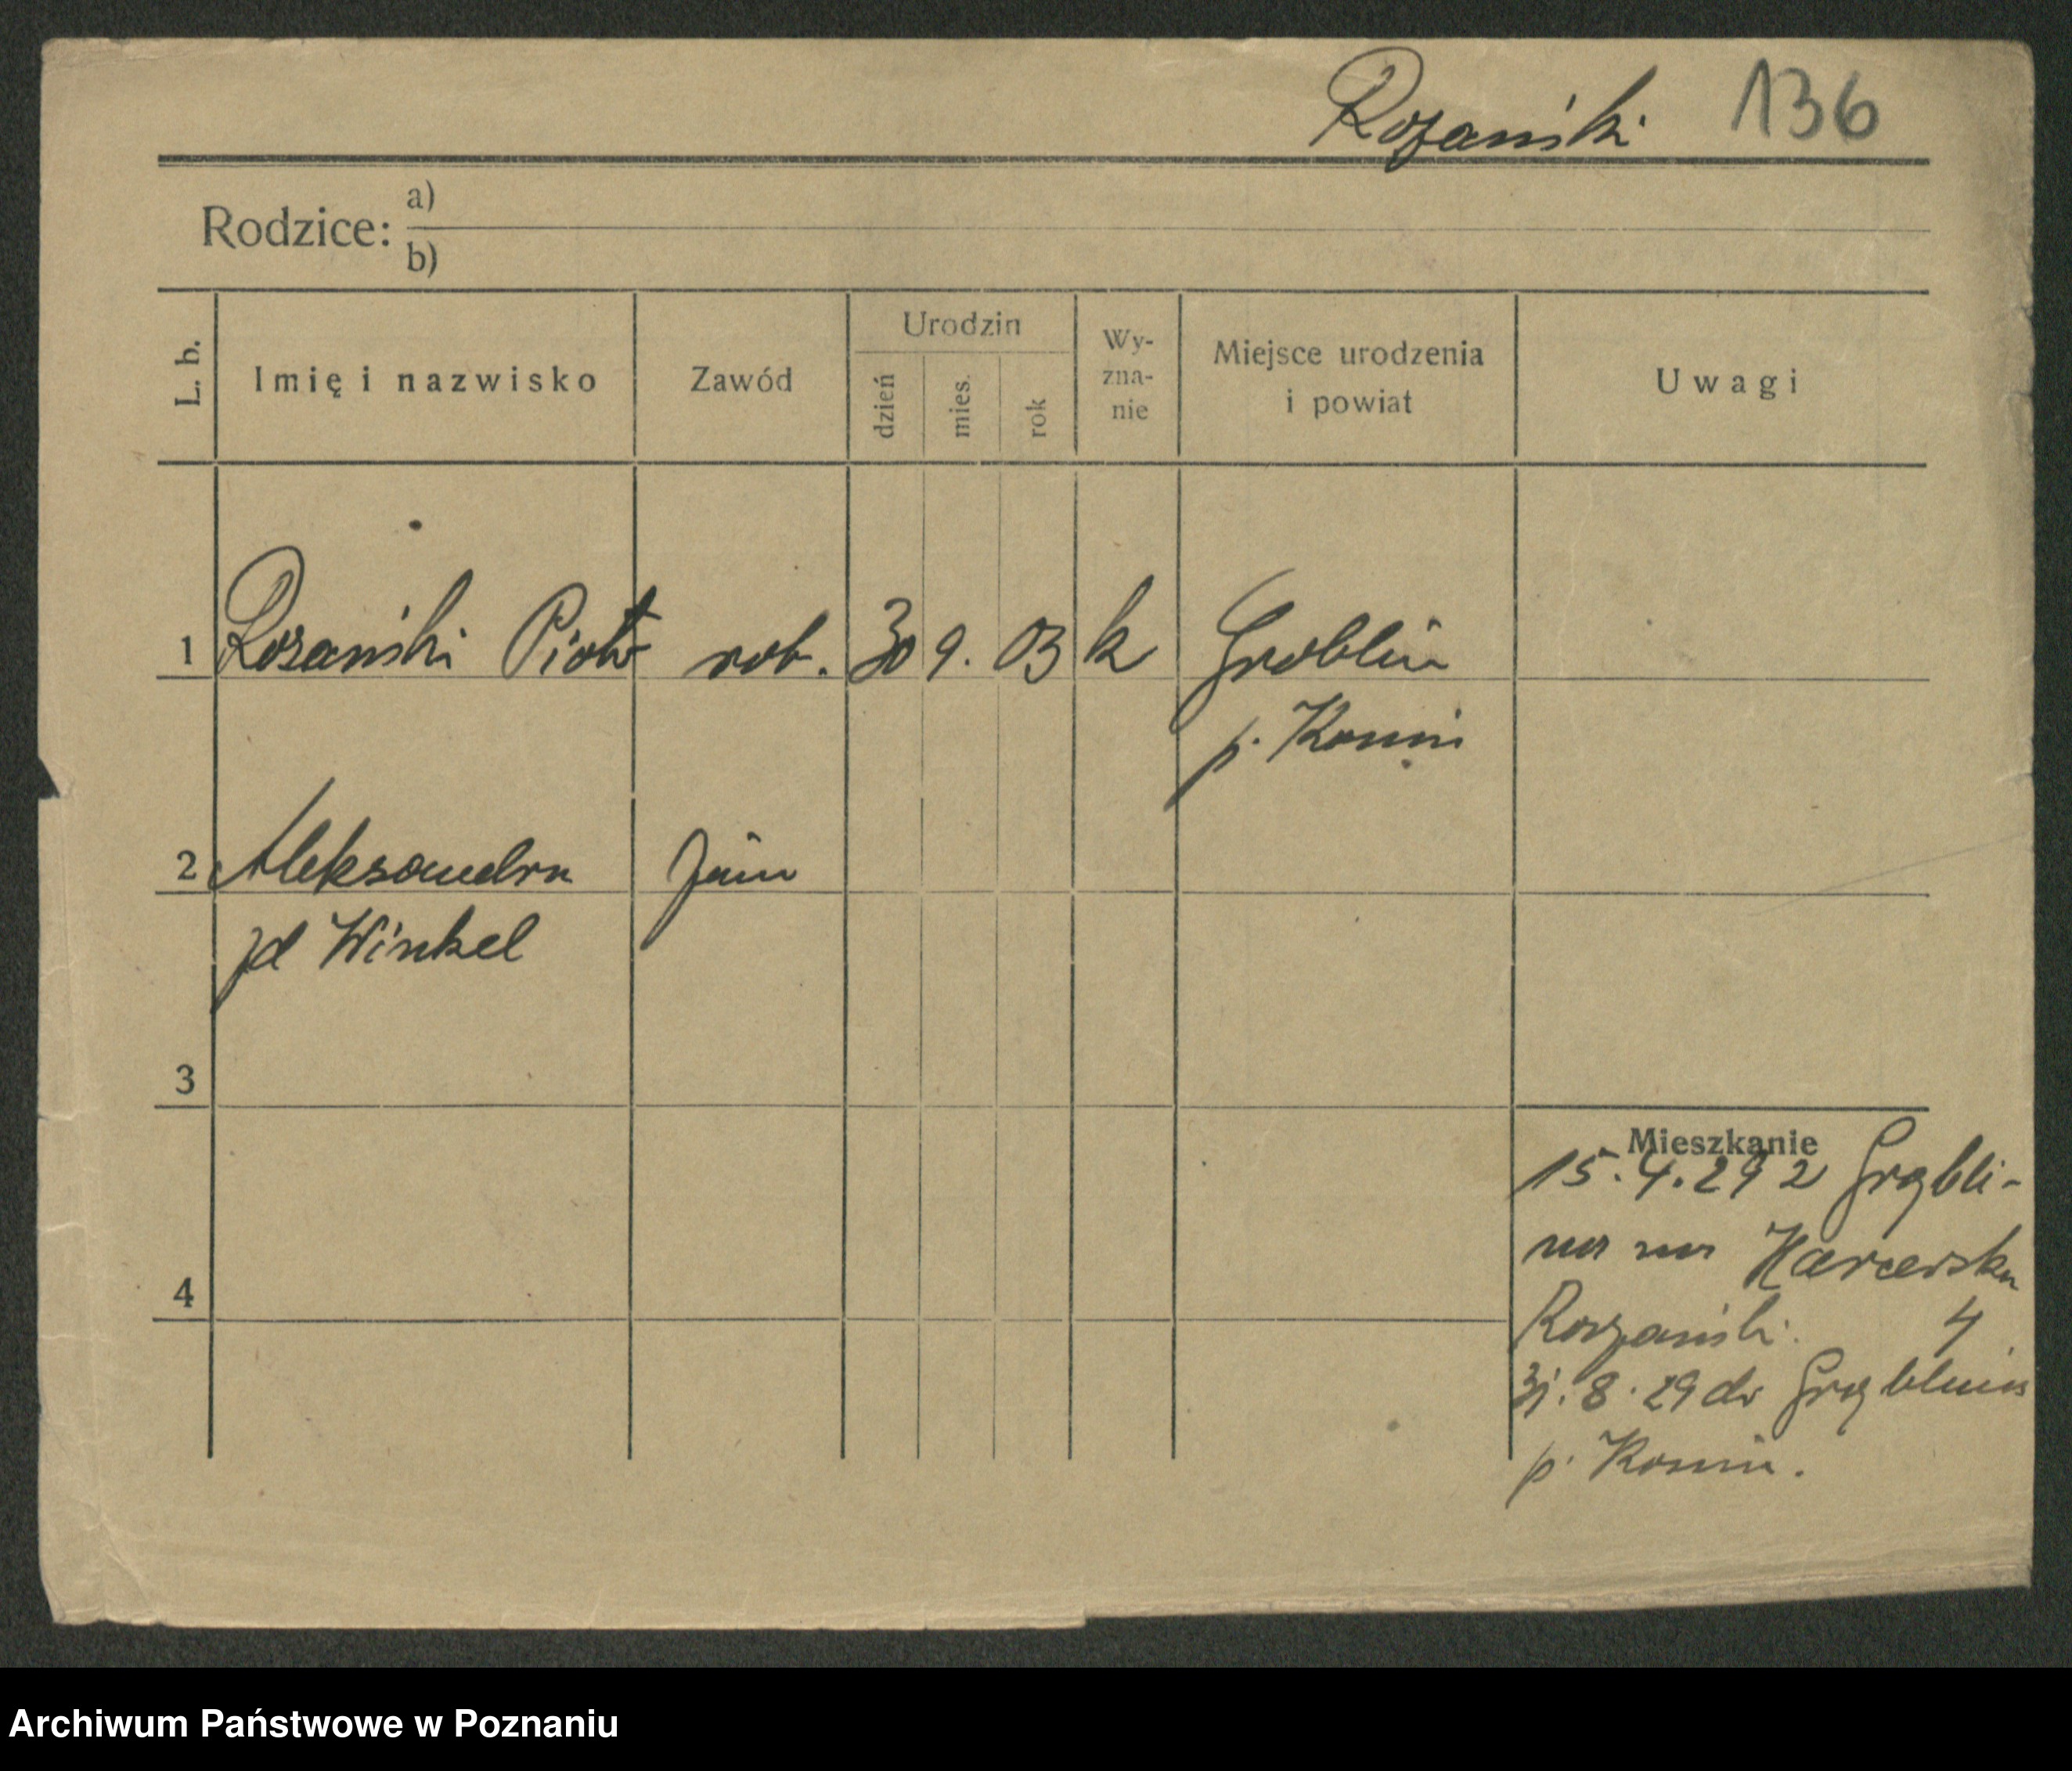 Rozański 136
Rodzice: a)
b)
L. b.
Imię i nazwisko
Zawód
Urodzin
dzień
mies.
rok
Wy-
zna-
nie
Miejsce urodzenia
i powiat
Uwagi
1 Rozański Piotr rob. 30 9. 03 k Groblin
p. Konin
2 Aleksandra
zd Winkel
3
4
Mieszkanie
15.4.29 z Grąbli-
na na Harcerska
Rozzański. 4
31.8.29 do Grąblina
p. Konin.
Archiwum Państwowe w Poznaniu